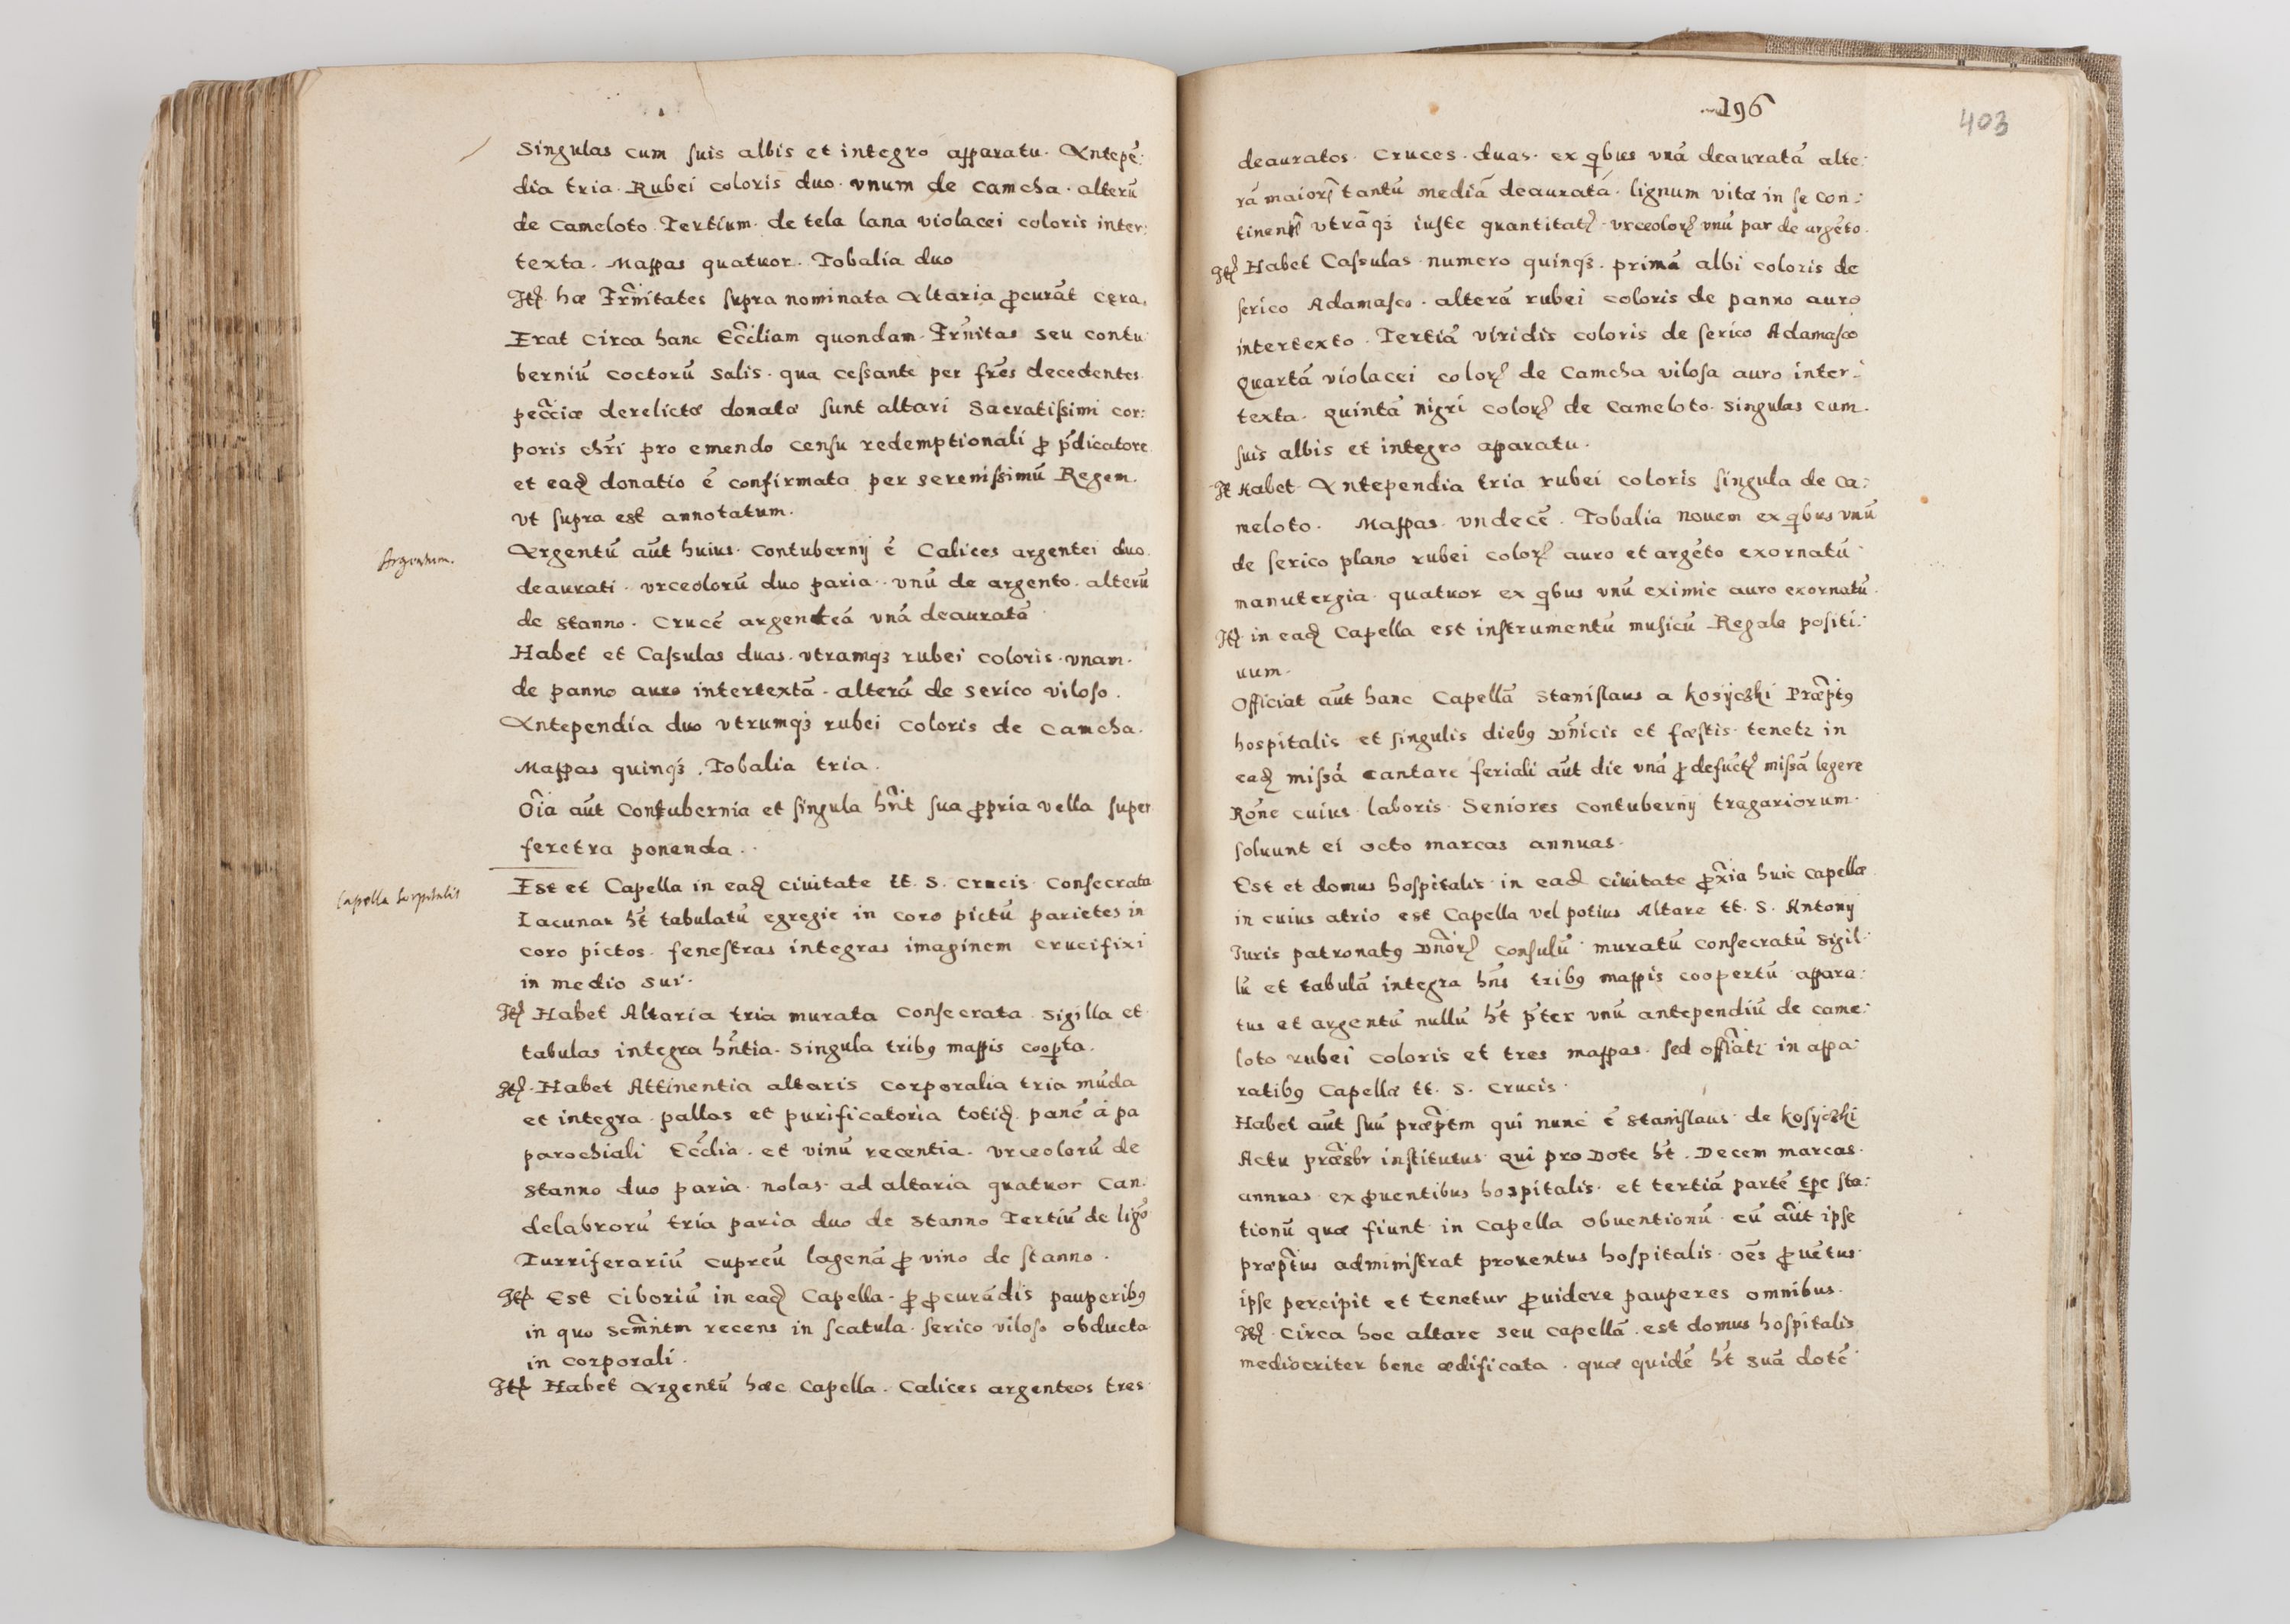 Singulas cum suis albis et integro apparatu. Antepē:
dia tria. Rubei coloris duo. vnum de Camcha. alterū
de Cameloto. Tertium. de tela lana violacei coloris inter:
texta. Mappas quatuor. Tobalia duo
Itē hæ Frñitates supra nominata Altaria ꝓcurāt cęra.
Erat Circa hanc Eccliam quondam. Frñitas seu contu
berniū coctorū Salis. qua cessante per frēs decedentes.
pecciæ derelictæ donatæ sunt altari Sacratissimi cor:
poris chrī pro emendo censu redemptionali ꝓ p̄dicatore
et eadē donatio ē confirmata per serenissimū Regem.
vt supra est annotatum.
Argentum.
Argentū aūt huius. Contubernij ē Calices argentei duo.
deaurati. vrceolorū duo paria. vnū de argento. alterū
de Stanno. Crucē argenteā vnā deauratā
Habet et Cassulas duas. vtramqȝ rubei coloris. vnam.
de panno auro intertextā. alterā de serico viloso.
Antependia duo vtrumqȝ rubei coloris de Camcha.
Mappas quinqȝ. Tobalia tria.
Oīa aūt Contubernia et singula hñt sua ꝓpria vella super
feretra ponenda.
Capella hospitalis
Est et Capella in eadē ciuitate tt. S. Crucis Consecrata
Lacunar ht̄ tabulatū egregie in coro pictū parietes in
coro pictos. fenestras integras imaginem Crucifixi
in medio sui.
Itē Habet Altaria tria murata Consecrata Sigilla et
tabulas integra hñtia. Singula tribꝰ mappis coopta.
Itē. Habet Attinentia altaris corporalia tria mūda
et integra. pallas et purificatoria totidē. panē à pa
parochiali Ecclia. et vinū recentia. vrceolorū de
Stanno duo paria. nolas. ad altaria quatuor Can:
delabrorū tria paria duo de Stanno Tertiū de ligō
Turriferariū cupreū lagenā ꝓ vino de stanno.
Itē Est Ciboriū in eadē Capella. ꝓ ꝓcurādis pauperibꝰ
in quo Scm̃ntm recens in scatula. serico viloso obducta
in corporali.
Itē Habet Argentū hæc Capella. Calices argenteos tres.
196
403
deauratos. Cruces. duas. ex qbus vnā deauratā alte:
rā maiorē tantū mediā deauratā. lignum vitæ in se Con:
tinentē vtrāqȝ iuste quantitatē. vrceolorē vnū par de argēto.
Itē Habet Cassulas numero quinqȝ. primā albi coloris de
serico Adamasco. alterā rubei coloris de panno auro
intertexto. Tertiā viridis coloris de serico Adamasco
Quartā violacei colorē de Camcha vilosa auro inter:
texta. Quintā nigri colorē de Cameloto. Singulas cum.
suis albis et integro apparatu.
It Habet Antependia tria rubei coloris singula de Ca:
meloto. Mappas. vndecē. Tobalia nouem ex qbus vnū
de serico plano rubei colorē auro et argēto exornatū
manutergia. quatuor ex qbus vnū eximie auro exornatū.
Itē in eadē Capella est instrumentū musicū Regale positi:
uum.
Officiat aūt hanc Capellā Stanislaus a Kosyczki Præptꝰ
hospitalis et singulis diebꝰ Dñicis et fæstis. tenetꝛ in
eadē missā cantare feriali aūt die vnā ꝓ defūctē missā legere
Rōne cuius laboris Seniores Contubernij tragariorum.
soluunt ei octo marcas annuas.
Est et domus hospitalis in eadē ciuitate ꝓxīa huic Capellæ
in cuius atrio est Capella vel potius Altare tt. S. Antonij
Iuris patronatꝰ Dñorē Consulū muratū consecratū Sigil:
lū et tabulā integra hñs tribꝰ mappis coopertū appara:
tus et argentū nullū ht̄ p̄ter vnū antependiū de came:
loto rubei coloris et tres mappas. sed offiatꝛ in appa:
ratibꝰ Capellæ tt. S. Crucis.
Habet aūt suū præptm qui nunc ē Stanislaus de Kosyczki
Actu præsbr institutus qui pro Dote ht̄. Decem marcas.
annuas ex ꝓuentibus hospitalis. et tertiā partē tpe sta:
tionū quæ fiunt in Capella obuentionū. cū aūt ipse
præptus administrat prouentus hospitalis. oēs ꝓuētus.
ipse percipit et tenetur ꝓuidere pauperes omnibus.
Itē. Circa hoc altare seu capellā. est domus hospitalis
mediocriter bene ædificata. quæ quidē ht̄ suā dotē